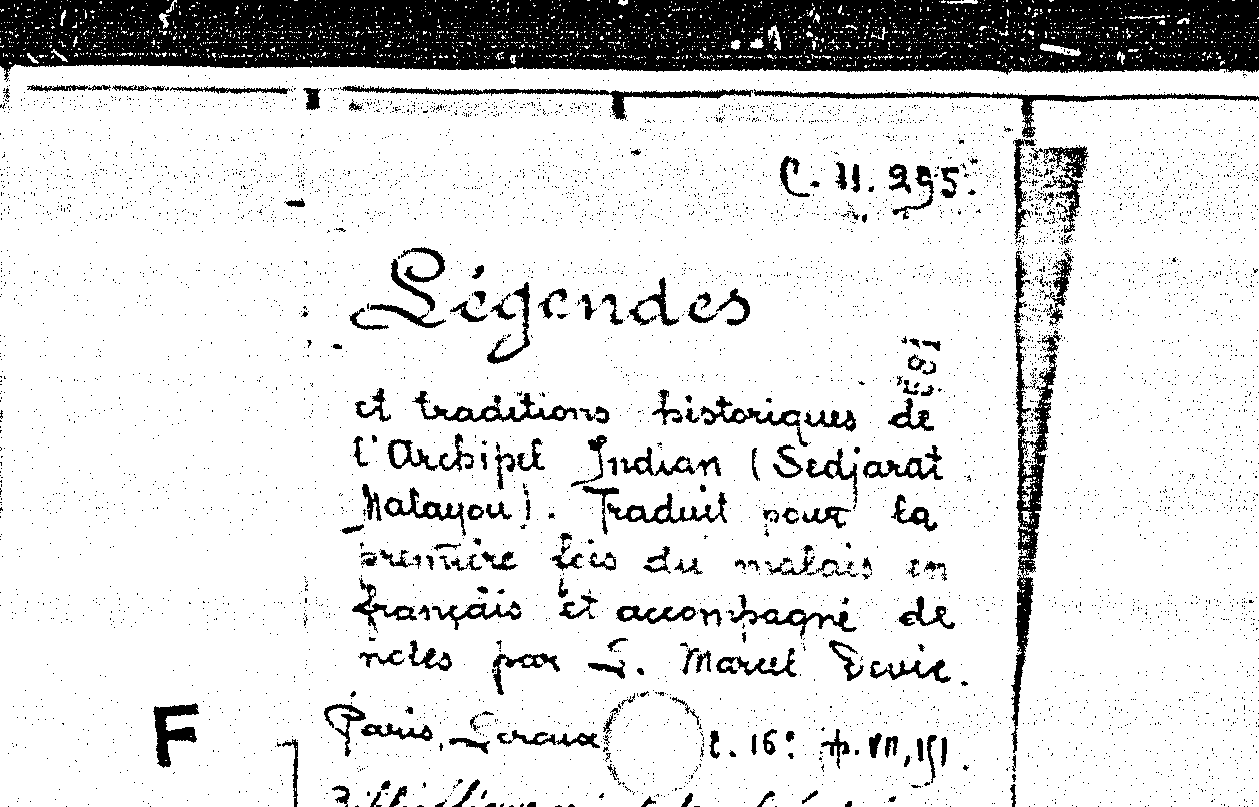 C. 11. 295.
Légendes
1881
et traditions historiques de
l'Archipel Indian (Sedjarat
Malayou). Traduit pour la
première fois du malais en
français et accompagné de
notes par L. Marcel Devic.
F
Paris, Leroux 2. 16º p. VII, 151.